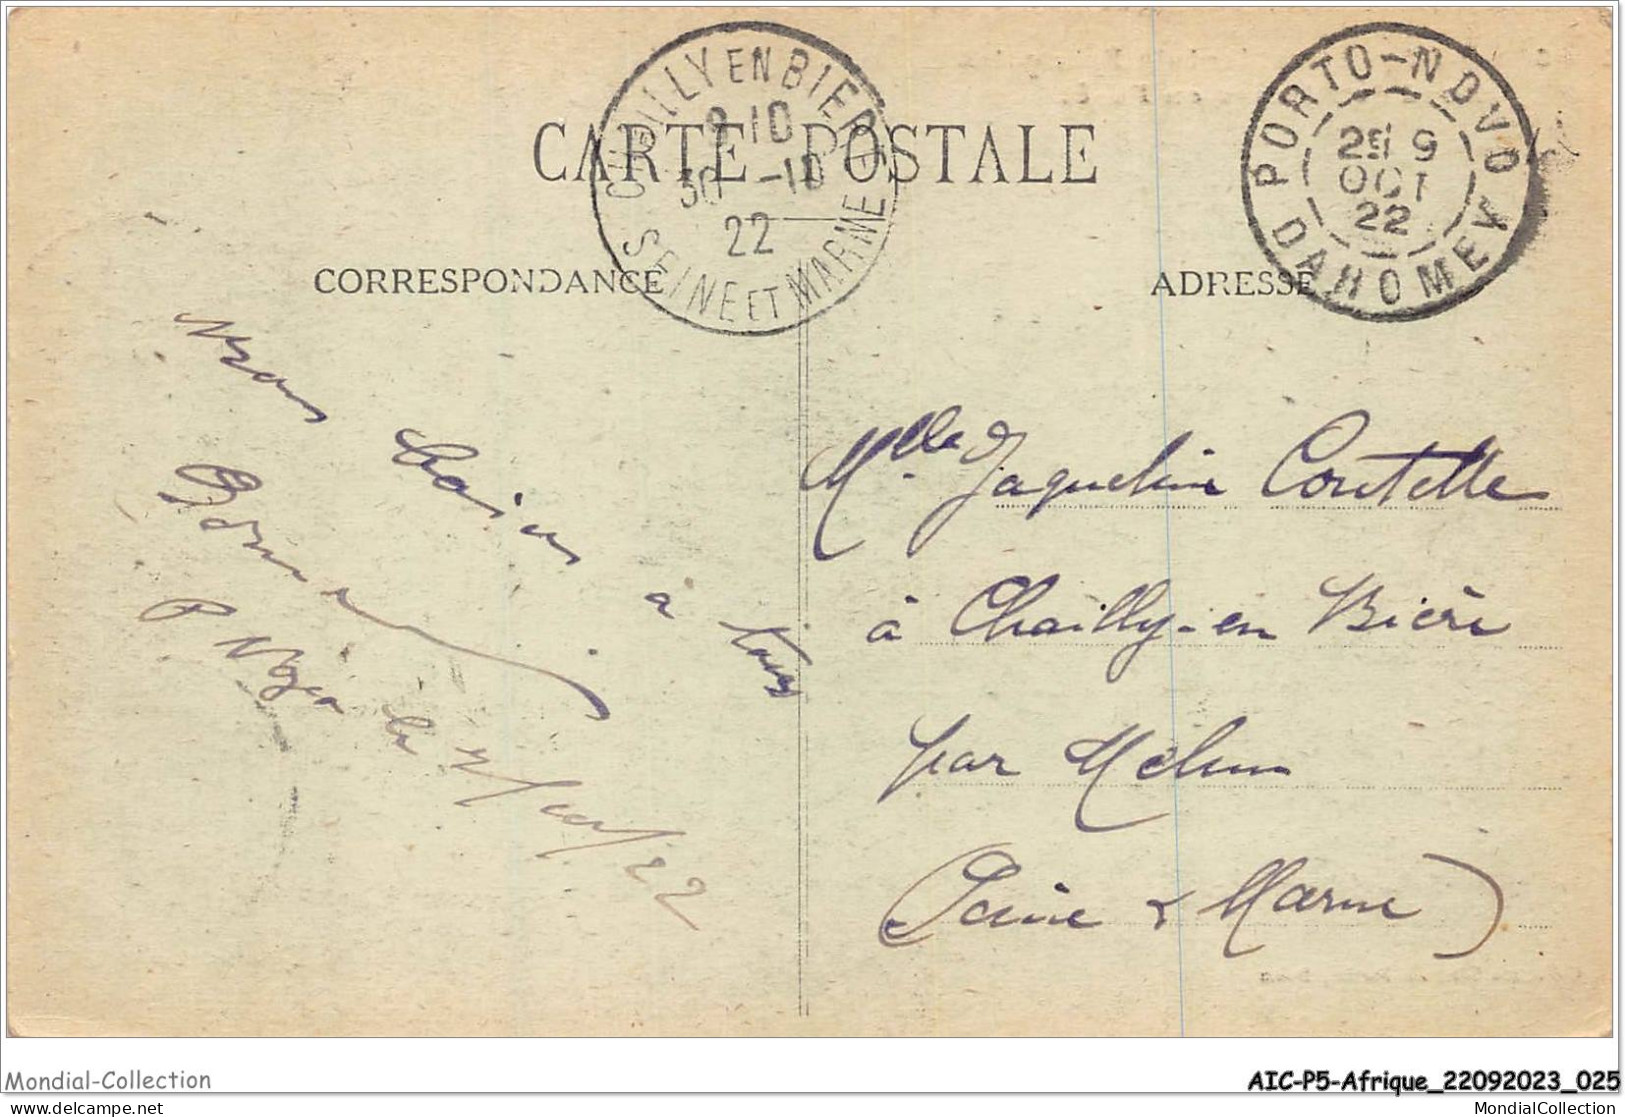 CARTE POSTALE
CHAILLY EN BIERE
9 10
30 -10
22
SEINE ET MARNE
PORTO-NOVO
9
OCT
22
DAHOMEY
CORRESPONDANCE
ADRESSE
à tous
le
22
Melle Jaqueline Coutelle
à Chailly-en Bière
par Melun
(Seine & Marne)
Mondial-Collection
AIC-P5-Afrique_22092023_025
delcampe.net
MondialCollection